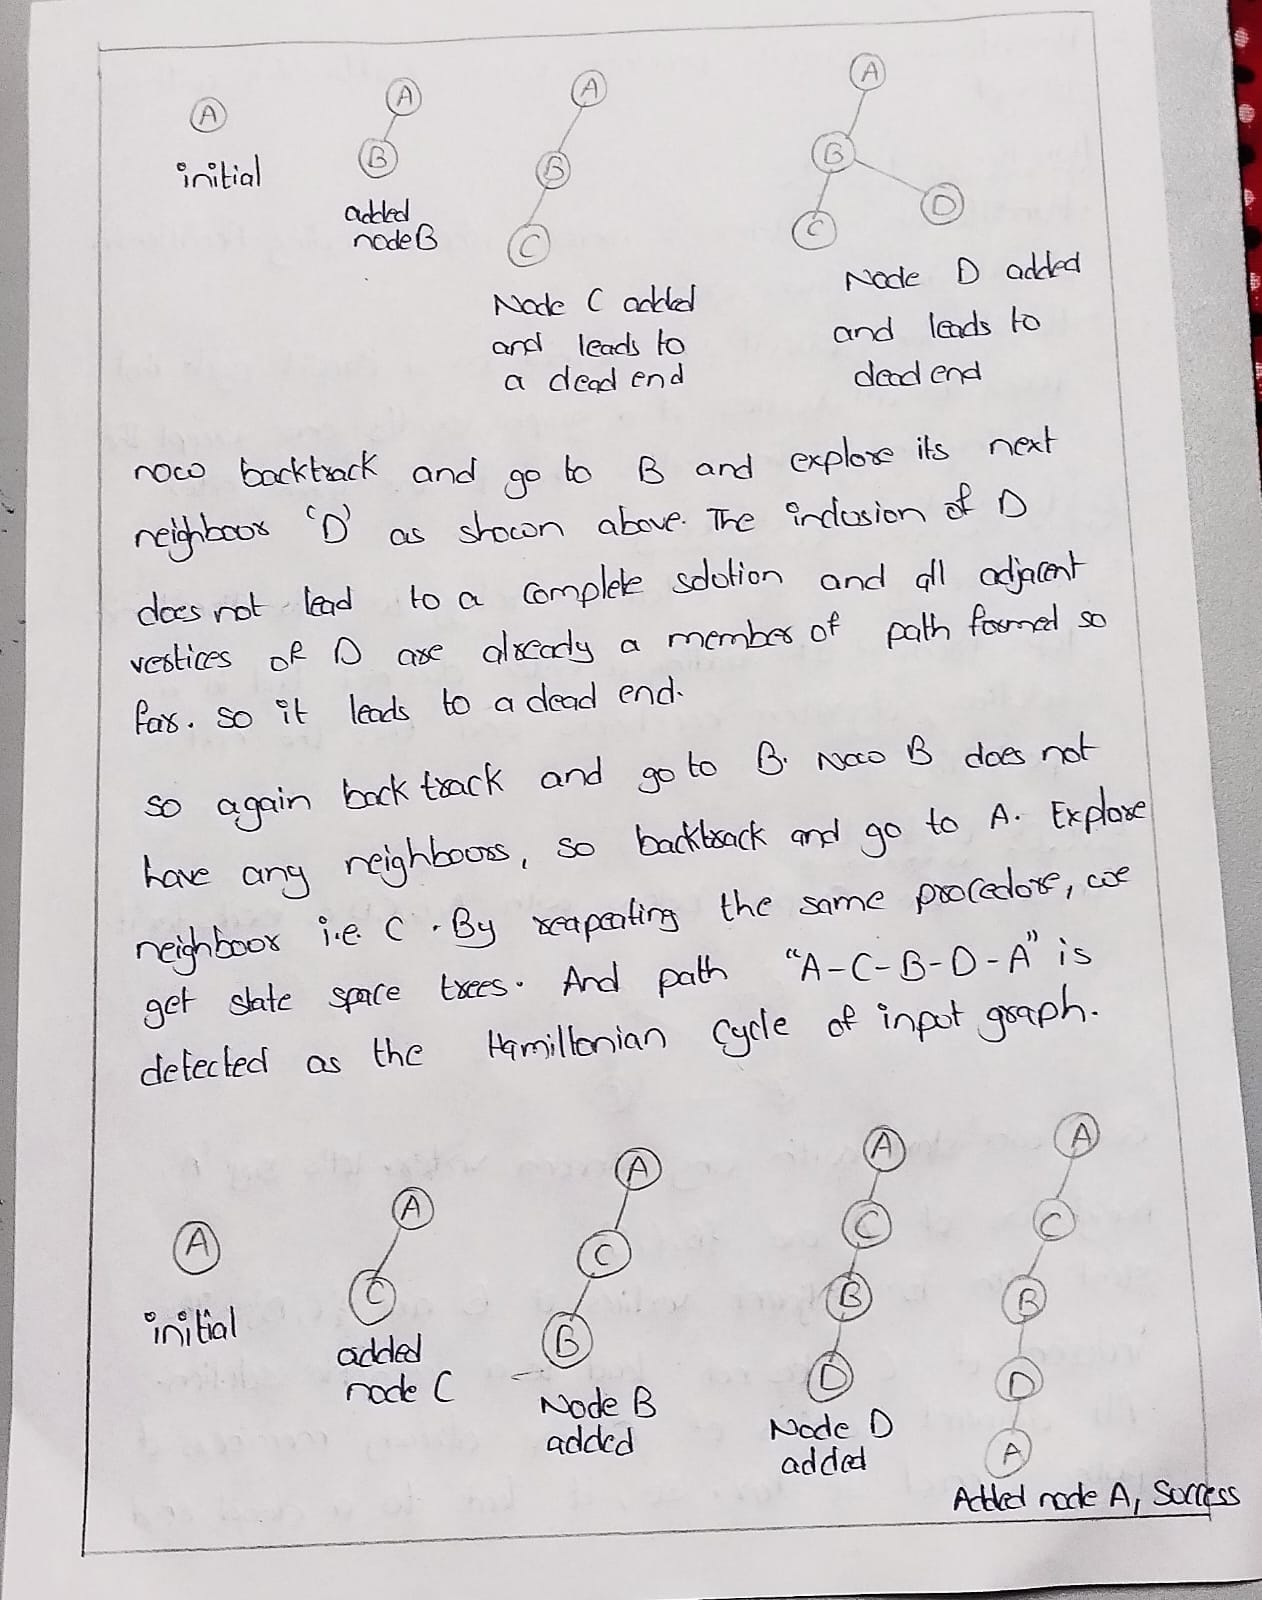 A
initial
A
B
added
node B
A
B
C
Node C added
and leads to
a dead end
A
B
C
D
Node D added
and leads to
dead end
now backtrack and go to B and explore its next
neighbour 'D' as shown above. The inclusion of D
does not lead to a complete solution and all adjacent
vertices of D are already a member of path formed so
far. so it leads to a dead end.
so again back track and go to B. Now B does not
have any neighbours, so backtrack and go to A. Explore
neighbour i.e. C. By reapeating the same procedure, we
get state space trees. And path "A-C-B-D-A" is
detected as the Hamiltonian Cycle of input graph.
A
initial
A
C
added
node C
A
C
B
Node B
added
A
C
B
D
Node D
added
A
C
B
D
A
Added node A, Success